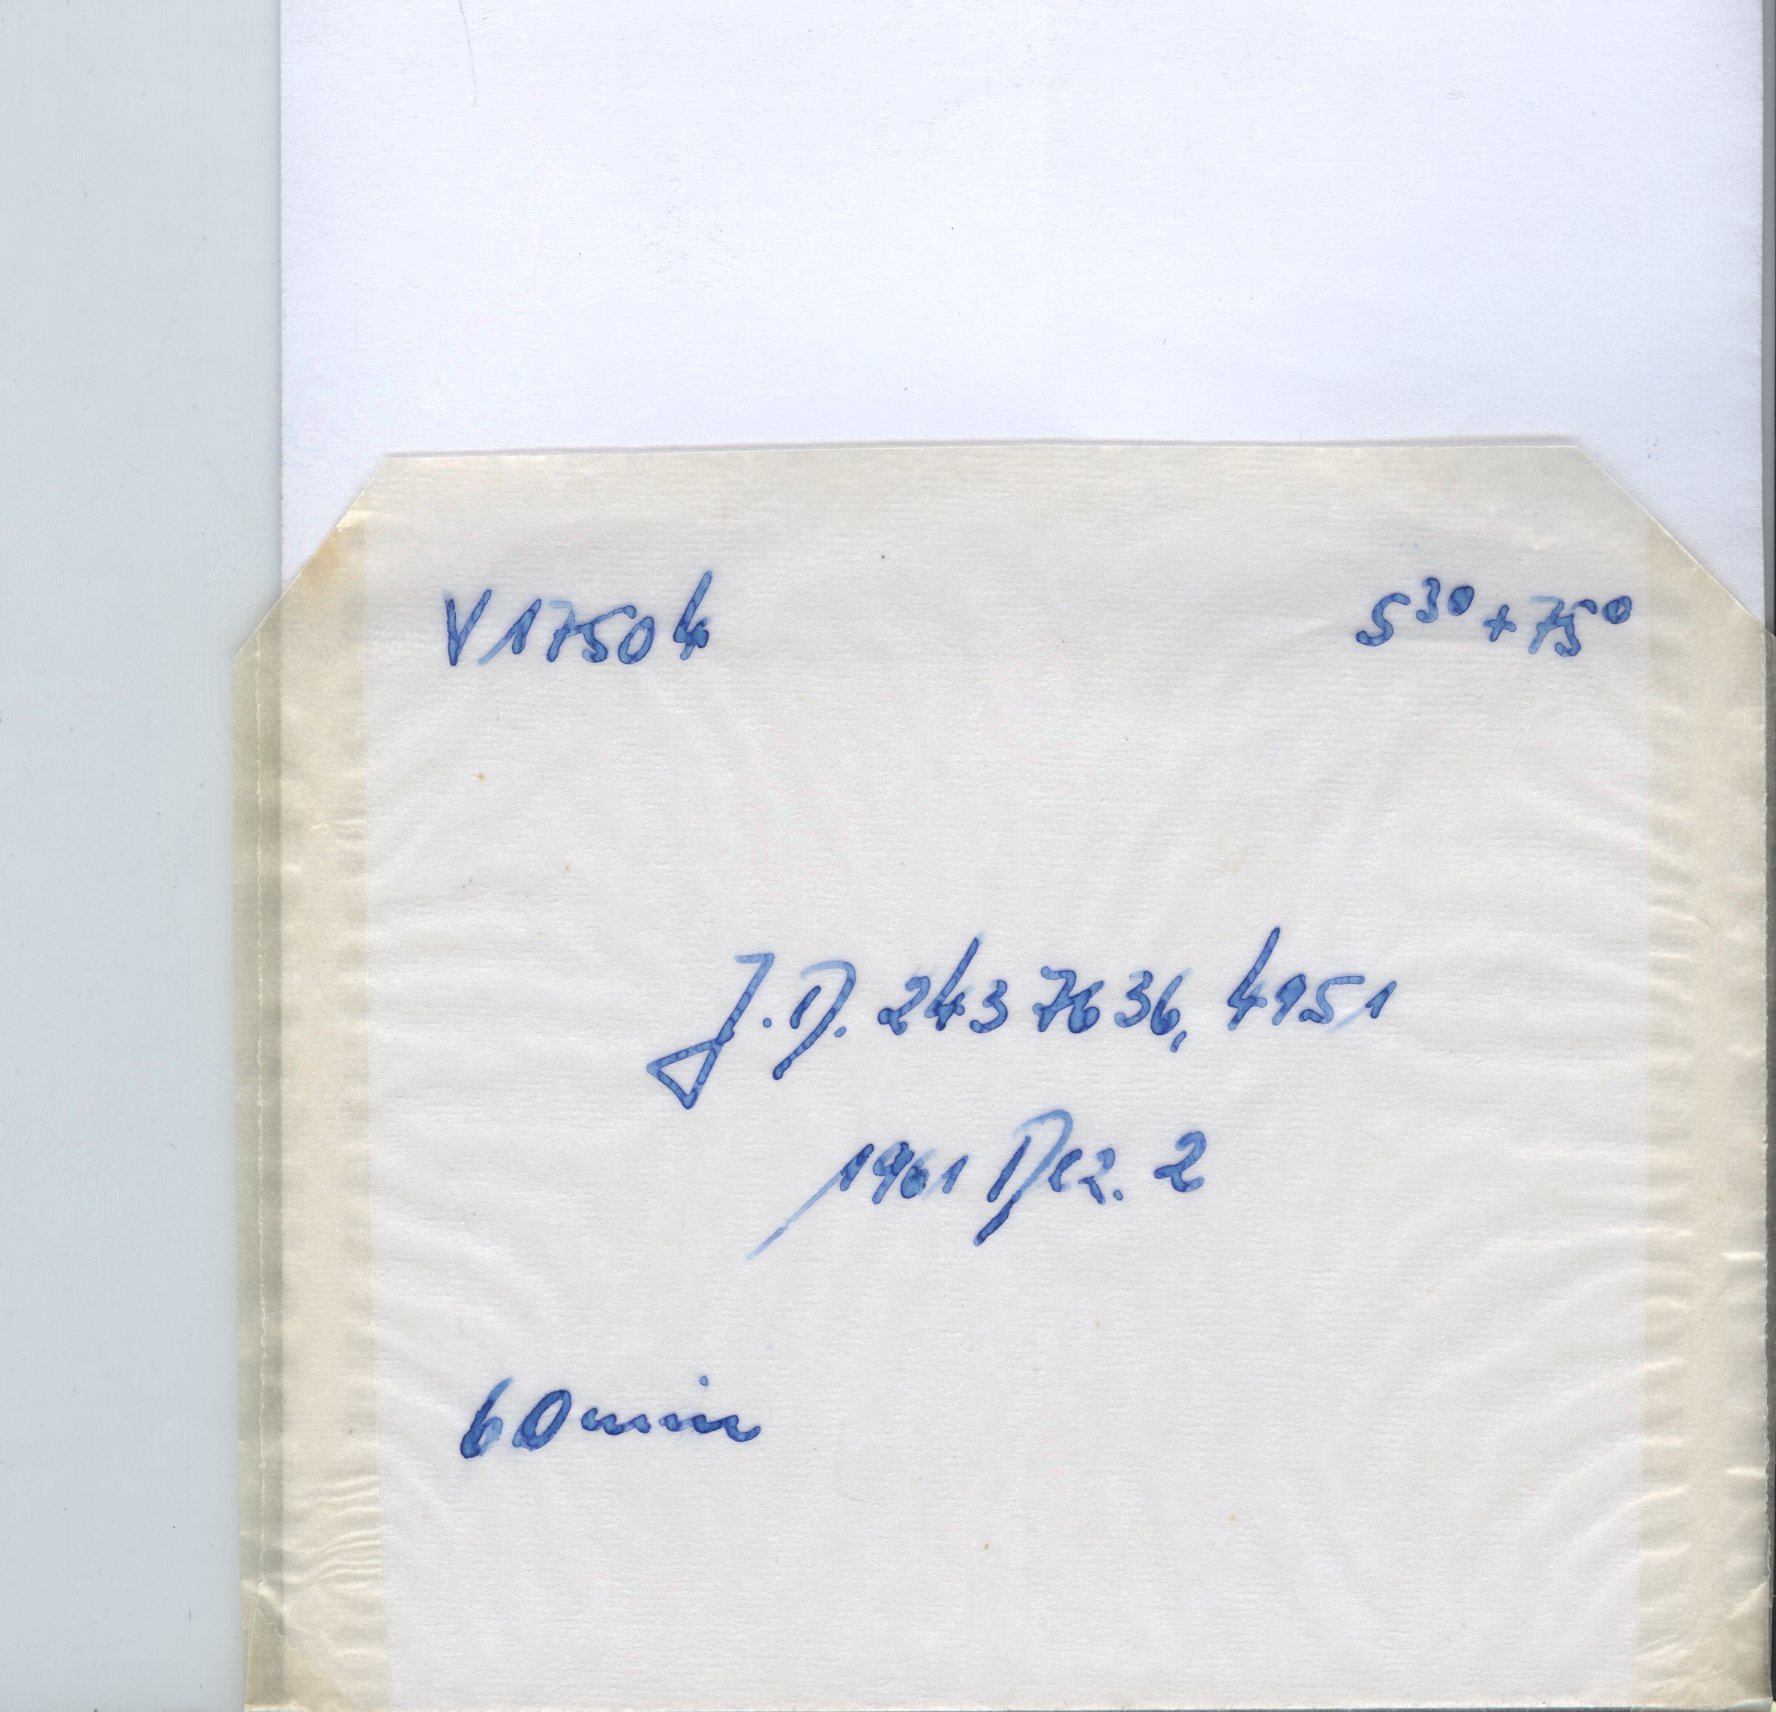 V17504 5³⁰+75⁰
J.D. 2437636,4951
1961 Dez. 2
60min